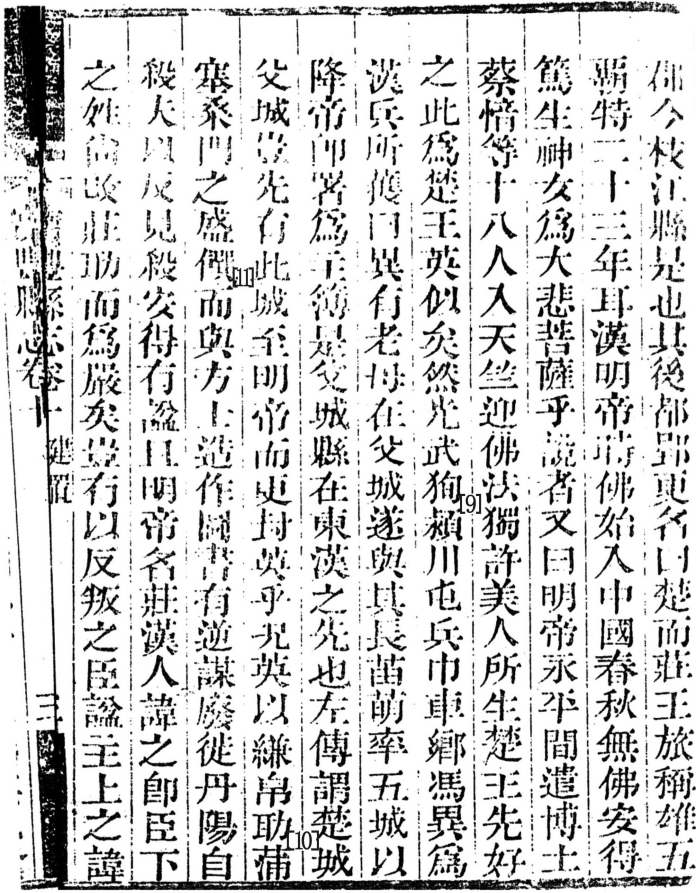 郡今枝江縣是也其後都郢更名曰楚而莊王旅稱雄五
霸特二十三年耳漢明帝時佛始入中國春秋無佛安得
篤生神女爲大悲菩薩乎說者又曰明帝永平間遣博士
蔡愔等十八人入天竺迎佛法獨許美人所生楚王先好
之此爲楚王英似矣然光武狥[9]潁川屯兵巾車鄉馮異爲
漢兵所獲曰異有老母在父城遂與其長苗萌率五城以
降帝卽署爲主簿是父城縣在東漢之先也左傳謂楚城[10]
父城豈先有此城至明帝而更封英乎况英以縑帛助蒲
塞桑門之盛饌[11]而與方士造作圖書有逆謀廢徙丹陽自
殺夫以反見殺安得有謚且明帝名莊漢人諱之卽臣下
之姓尙改莊助而爲嚴矣豈有以反叛之臣謚主上之諱
寶豐縣志卷十 建置 三
縣志卷十